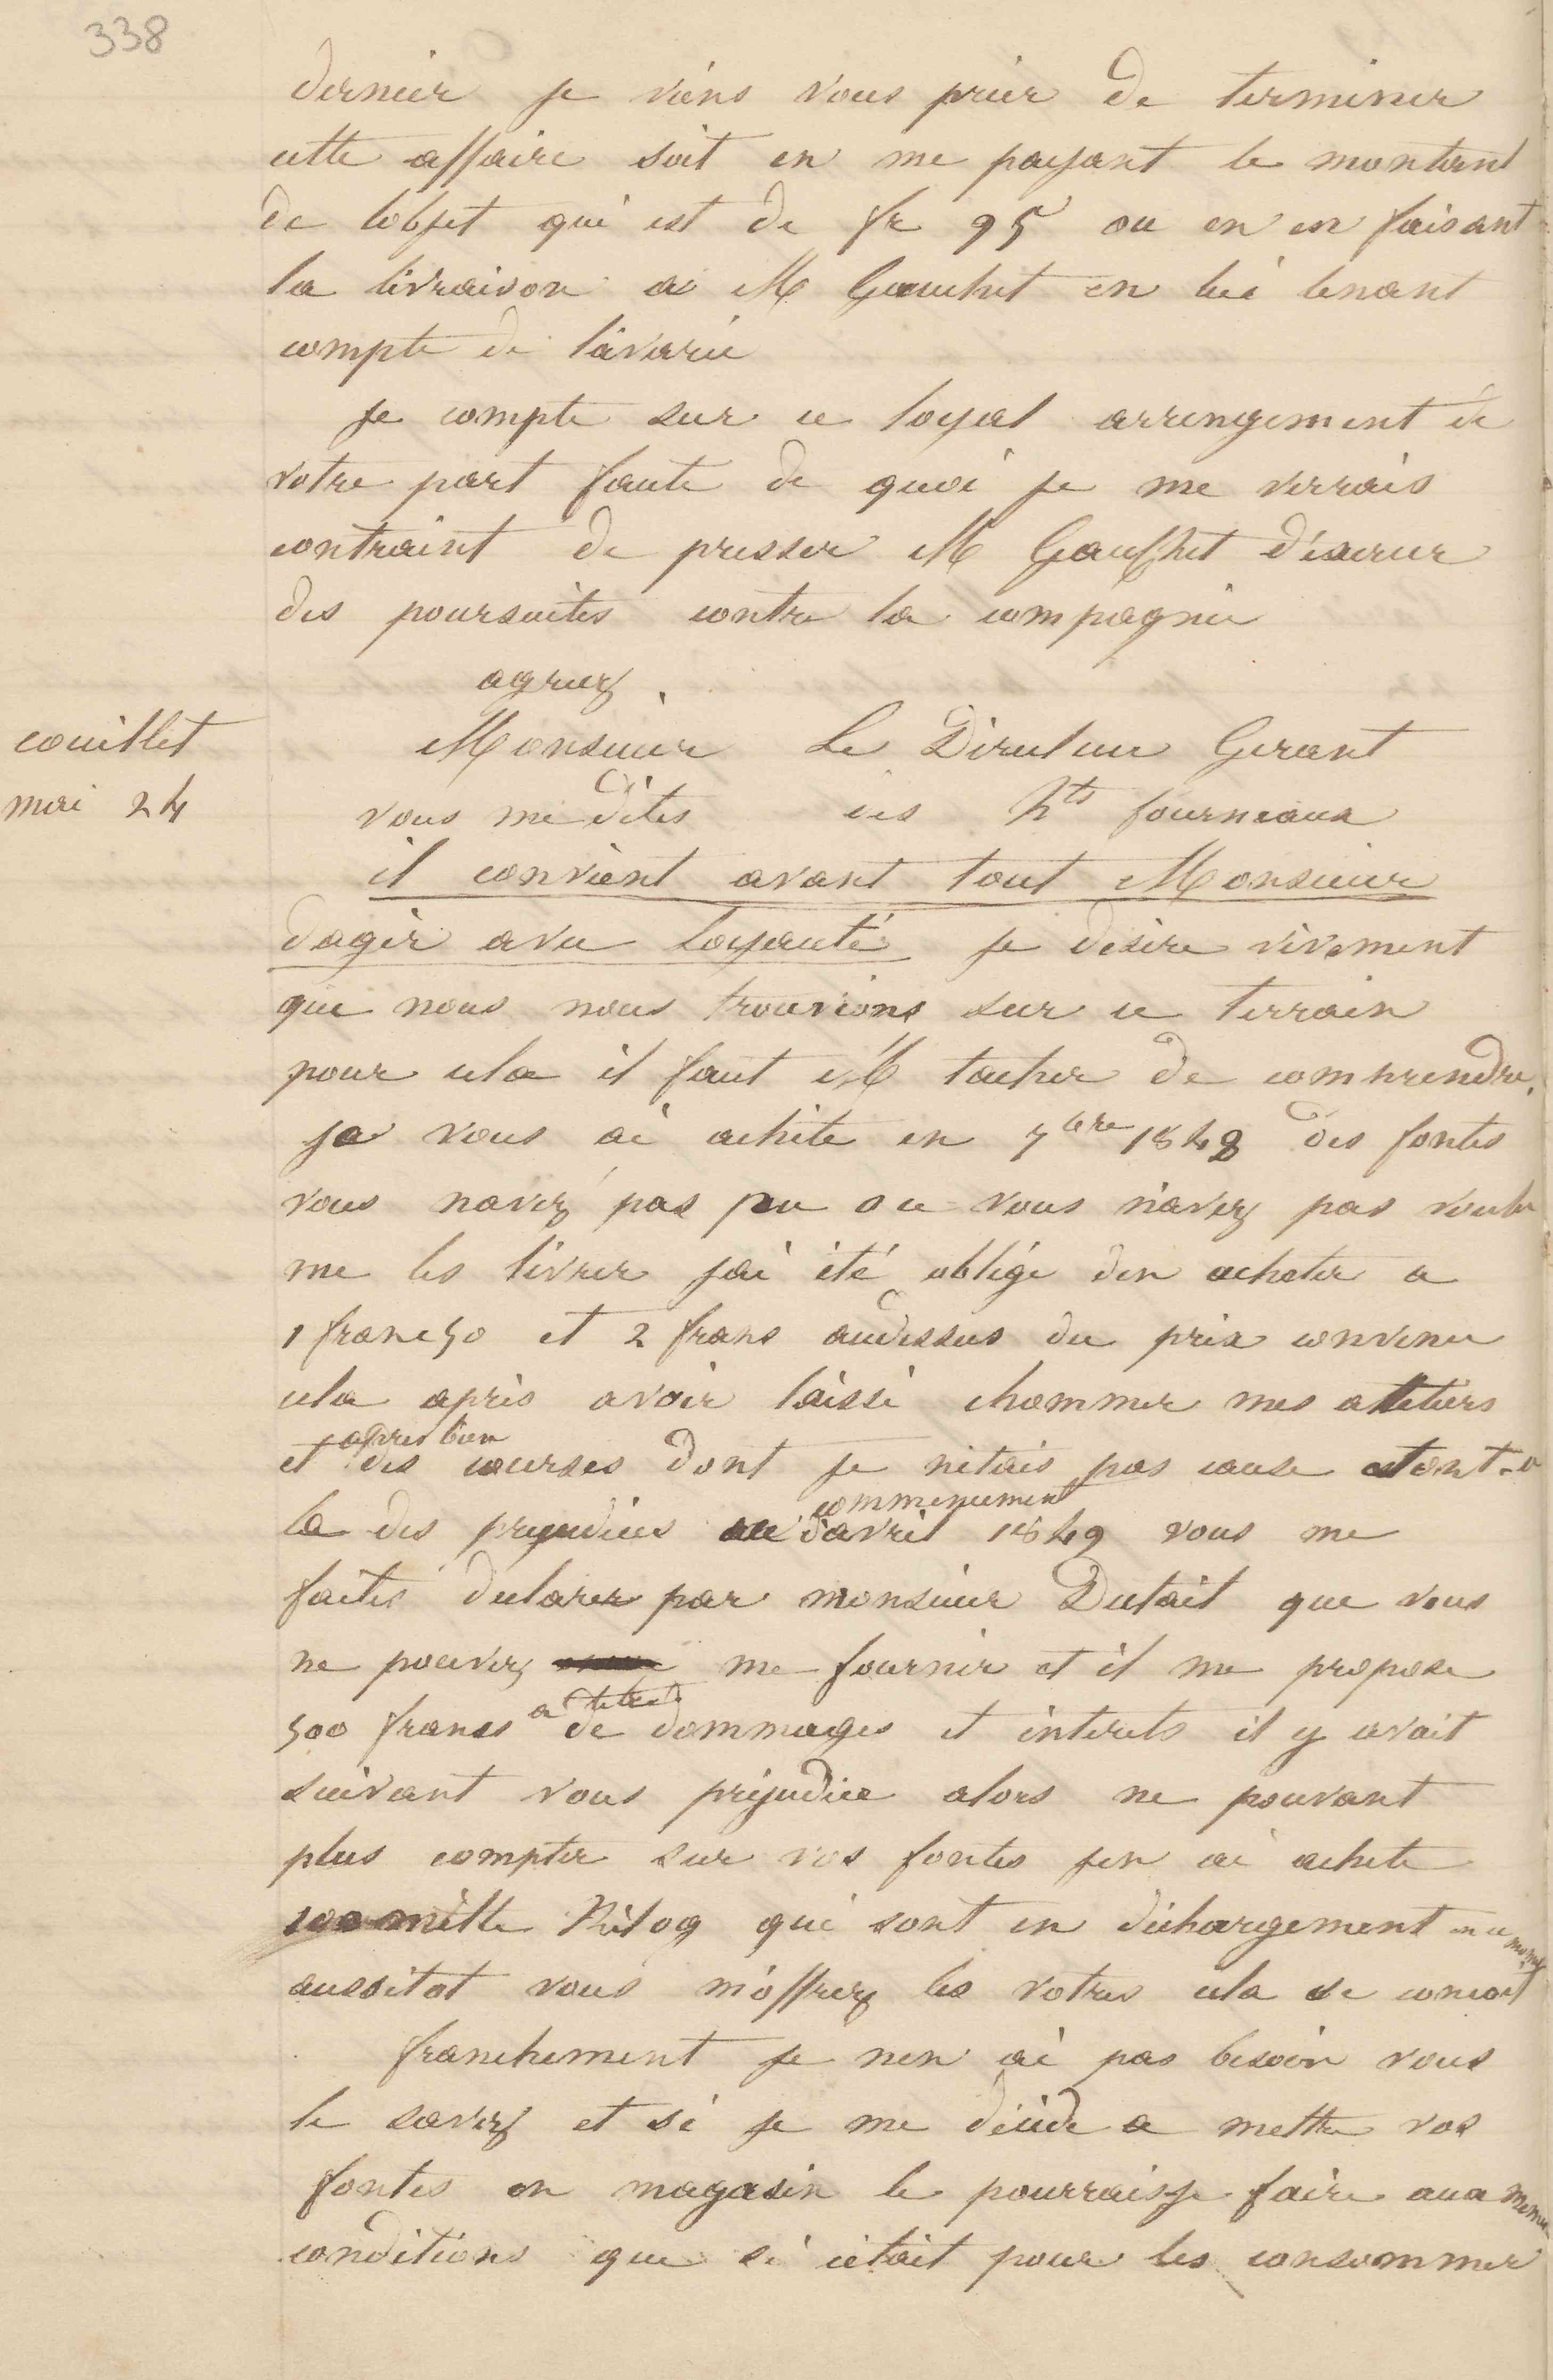 338
dernier je viens vous prier de terminer
cette affaire soit en me payant le montant
de lobjet qui est de fr 95 ou en en faisant
la livraison a M Gauchet en lui tenant
compte de l'avarie
je compte sur ce loyal arrengement de
votre part faute de quoi je me verrais
contraint de presser M Gauchet d'exercer
des poursuites contre la compagnie
agreez
couillet
mai 24
Monsieur Le Directeur Gerant
vous me dites des hts fourneaux
il convient avant tout Monsieur
dagir avec loyauté je desire vivement
que nous nous trouvions sur ce terrain
pour cela il faut M tacher de comprendre
je vous ai acheté en 7bre 1848 des fontes
vous navez pas pu ou vous n'avez pas voulu
me les livrer jai été obligé den acheter a
1 franc 50 et 2 francs audessus du prix convenu
cela après avoir laissé chommer mes atteliers
et apres bien des courses dont je nétais pas cause
la des prejudices au commencement d'avril 1849 vous me
faites declarer par monsieur Dutait que vous
ne pouvez me fournir et il me propose
500 francs a titre de dommages et interets il y avait
suivant vous préjudice alors ne pouvant
plus compter sur vos fontes jen ai acheté
100 mille Kilog qui sont en déchargement en ce moment
aussitot vous m'offrez les votres cela se concoit
franchement je nen ai pas besoin vous
le savez et si je me décide a mettre vos
fontes en magasin le pourraisje faire aux memes
conditions que si cétait pour les consommer